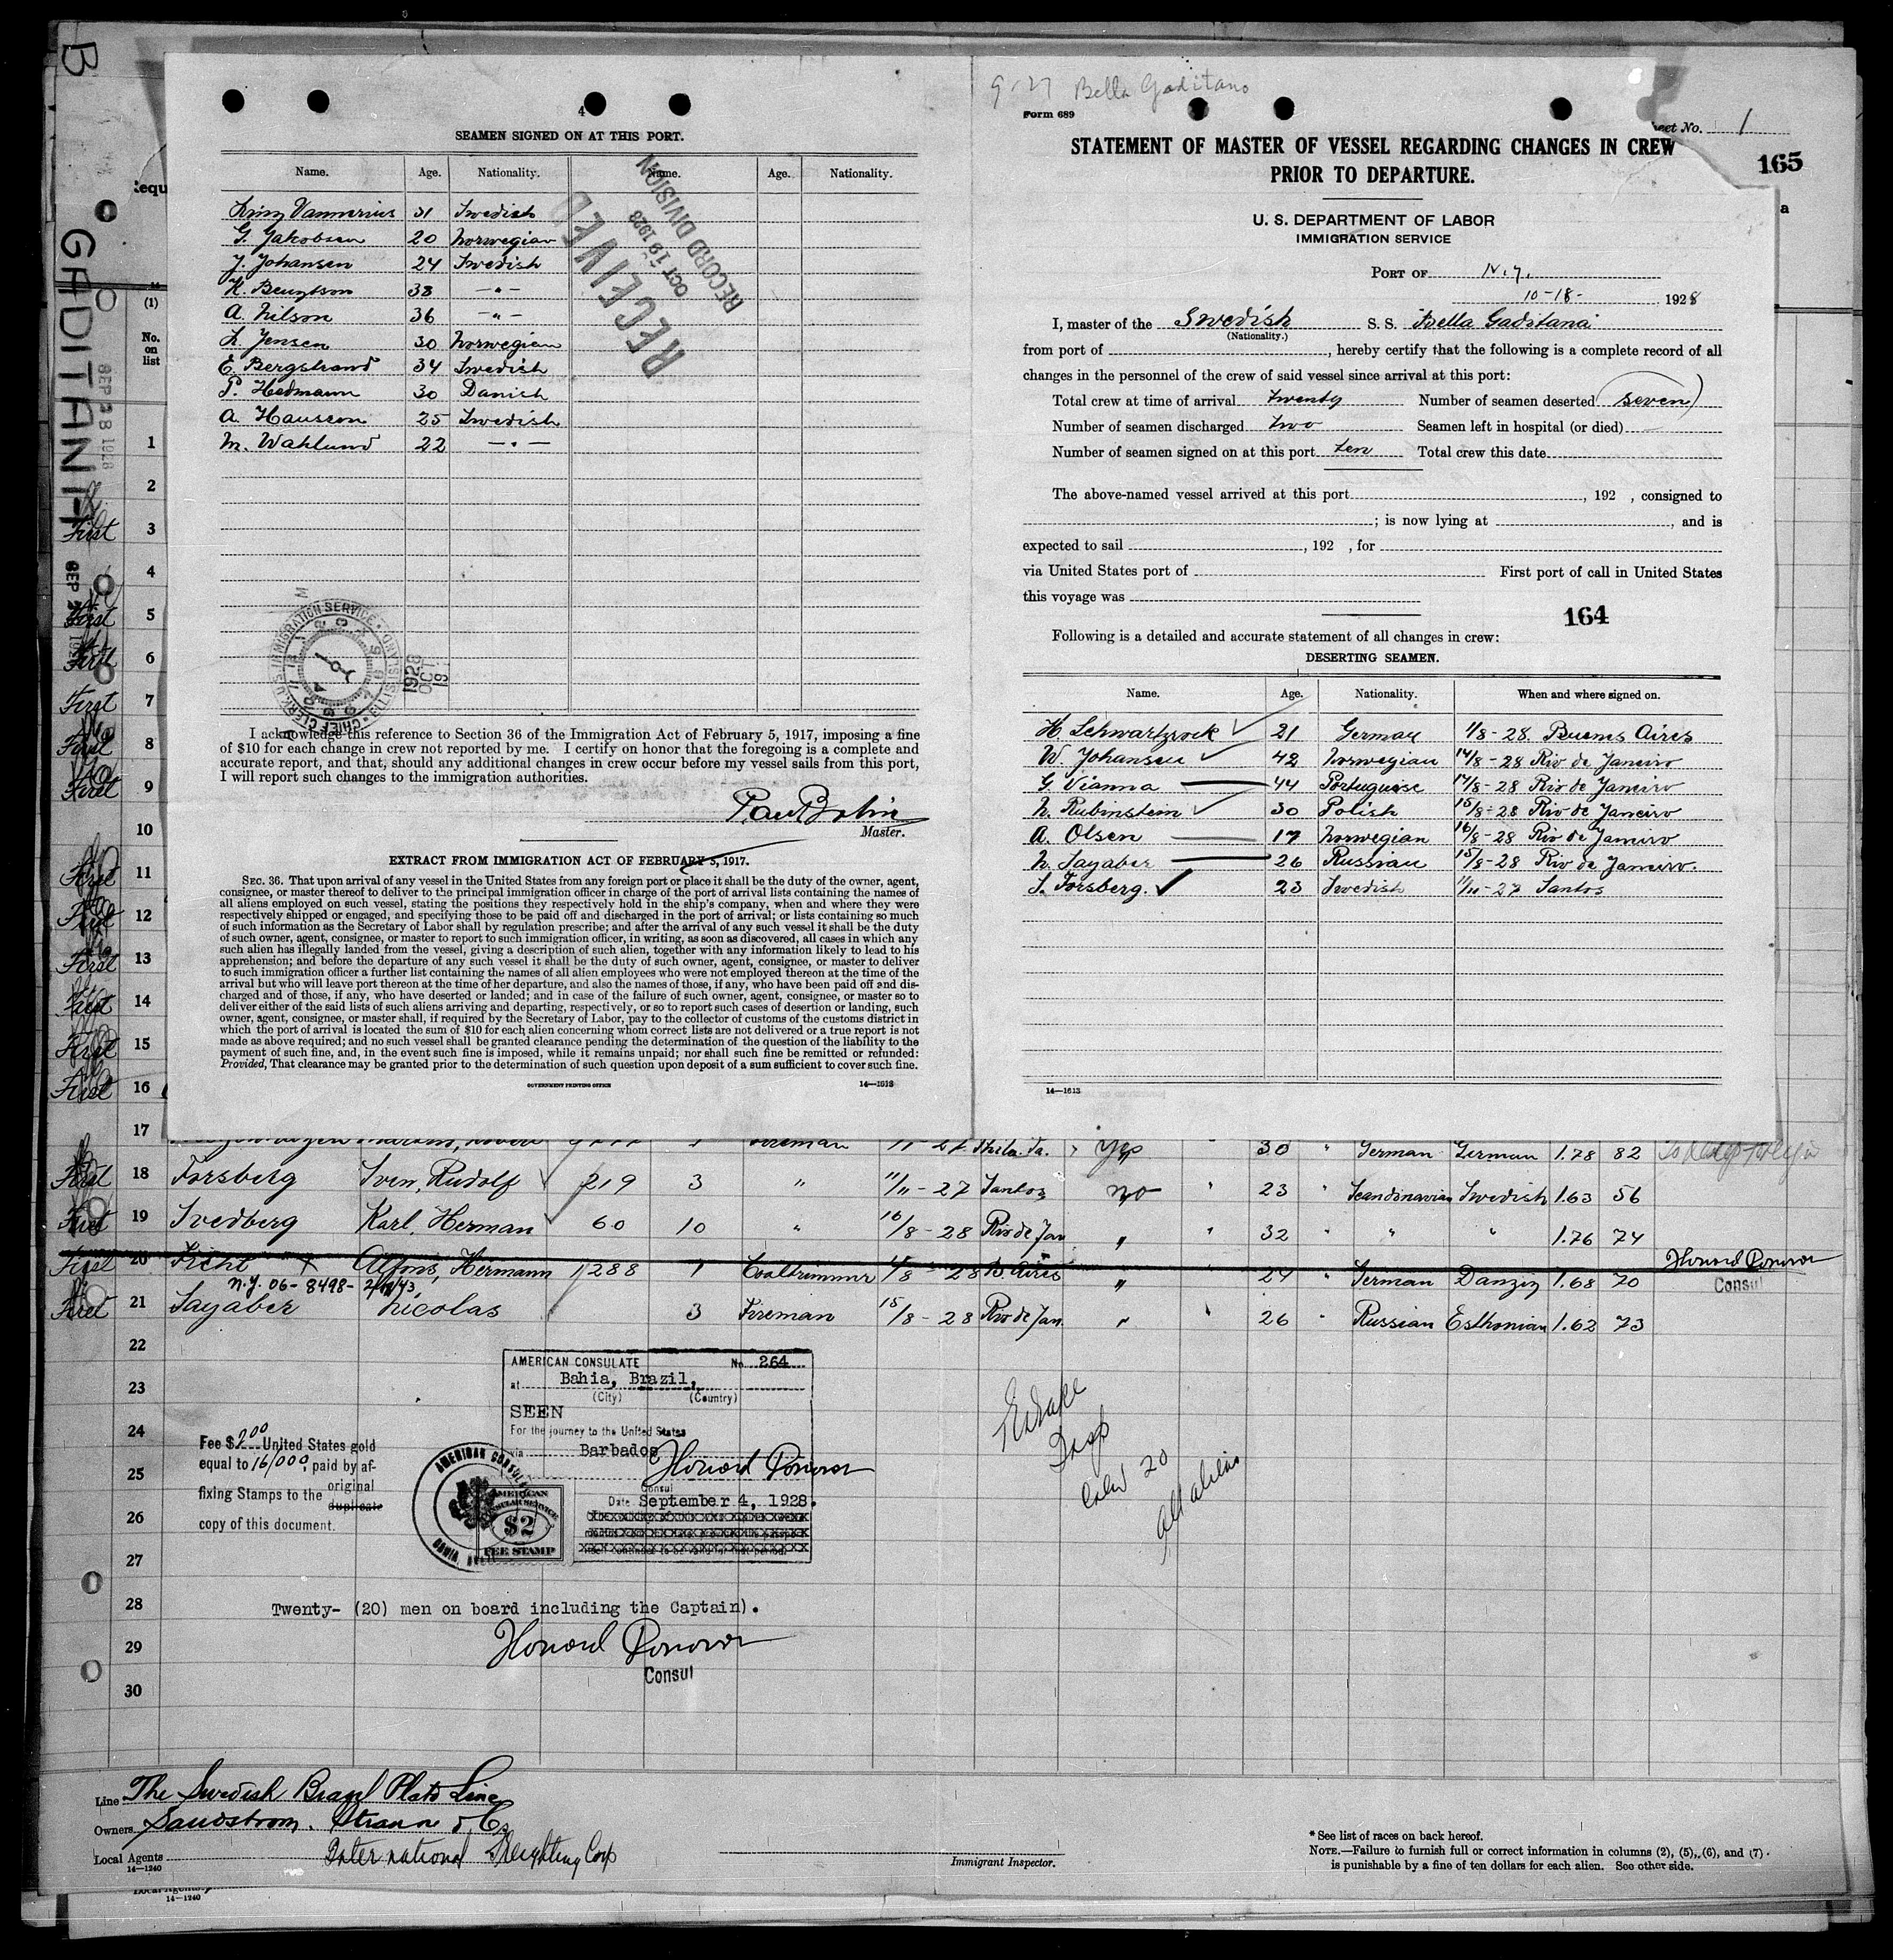 B
GADITANA
SEP 28 1928
4
SEAMEN SIGNED ON AT THIS PORT.
Name. Age. Nationality. Name. Age. Nationality.
Vannerius 31 Swedish
G. Jakobsen 20 Norwegian
J. Johansen 24 Swedish
K. Bengtson 38 — " —
A. Nilson 36 — " —
L. Jensen 30 Norwegian
E. Bergstrand 34 Swedish
P. Hedmann 30 Danish
A. Hanson 25 Swedish
M. Wahlund 22 — " —
RECEIVED
OCT 19 1928
RECORD DIVISION
CHIEF CLERK, U.S. IMMIGRATION SERVICE · ELLIS ISLAND
1928
OCT
18
I acknowledge this reference to Section 36 of the Immigration Act of February 5, 1917, imposing a fine
of $10 for each change in crew not reported by me. I certify on honor that the foregoing is a complete and
accurate report, and that, should any additional changes in crew occur before my vessel sails from this port,
I will report such changes to the immigration authorities.
Master.
EXTRACT FROM IMMIGRATION ACT OF FEBRUARY 5, 1917.
SEC. 36. That upon arrival of any vessel in the United States from any foreign port or place it shall be the duty of the owner, agent,
consignee, or master thereof to deliver to the principal immigration officer in charge of the port of arrival lists containing the names of
all aliens employed on such vessel, stating the positions they respectively hold in the ship's company, when and where they were
respectively shipped or engaged, and specifying those to be paid off and discharged in the port of arrival; or lists containing so much
of such information as the Secretary of Labor shall by regulation prescribe; and after the arrival of any such vessel it shall be the duty
of such owner, agent, consignee, or master to report to such immigration officer, in writing, as soon as discovered, all cases in which any
such alien has illegally landed from the vessel, giving a description of such alien, together with any information likely to lead to his
apprehension; and before the departure of any such vessel it shall be the duty of such owner, agent, consignee, or master to deliver
to such immigration officer a further list containing the names of all alien employees who were not employed thereon at the time of the
arrival but who will leave port thereon at the time of her departure, and also the names of those, if any, who have been paid off and dis-
charged and of those, if any, who have deserted or landed; and in case of the failure of such owner, agent, consignee, or master so to
deliver either of the said lists of such aliens arriving and departing, respectively, or so to report such cases of desertion or landing, such
owner, agent, consignee, or master shall, if required by the Secretary of Labor, pay to the collector of customs of the customs district in
which the port of arrival is located the sum of $10 for each alien concerning whom correct lists are not delivered or a true report is not
made as above required; and no such vessel shall be granted clearance pending the determination of the question of the liability to the
payment of such fine, and, in the event such fine is imposed, while it remains unpaid; nor shall such fine be remitted or refunded:
Provided, That clearance may be granted prior to the determination of such question upon deposit of a sum sufficient to cover such fine.
GOVERNMENT PRINTING OFFICE 14—1613
9-27 Bella Gaditano
Form 689
eet No. 1
165
STATEMENT OF MASTER OF VESSEL REGARDING CHANGES IN CREW
PRIOR TO DEPARTURE.
U. S. DEPARTMENT OF LABOR
IMMIGRATION SERVICE
PORT OF N.Y.
10-18- 1928
I, master of the Swedish S. S. Bella Gaditana
(Nationality.)
from port of , hereby certify that the following is a complete record of all
changes in the personnel of the crew of said vessel since arrival at this port:
Total crew at time of arrival twenty Number of seamen deserted (seven)
Number of seamen discharged two Seamen left in hospital (or died) —
Number of seamen signed on at this port ten Total crew this date
The above-named vessel arrived at this port , 192 , consigned to
; is now lying at , and is
expected to sail , 192 , for
via United States port of First port of call in United States
this voyage was
164
Following is a detailed and accurate statement of all changes in crew:
DESERTING SEAMEN.
Name. Age. Nationality. When and where signed on.
H. Schwartzrock 21 German 1/8-28 Buenos Aires
W. Johansen 42 Norwegian 14/8-28 Rio de Janeiro
G. Vianna 44 Portuguese 14/8-28 Rio de Janeiro
N. Rubinstein 30 Polish 15/8-28 Rio de Janeiro
A. Olsen 17 Norwegian 16/8-28 Rio de Janeiro
N. Sayaber 26 Russian 15/8-28 Rio de Janeiro.
S. Forsberg. 23 Swedish 11/11-27 Santos
14—1613
(1)
No.
on
list
1
2
First 3
4
First 5
First 6
First 7
First 8
First 9
10
First 11
First 12
First 13
First 14
First 15
First 16
17 Fireman Phila. Pa. Yes 30 " German German 1.78 82
First 18 Forsberg Sven, Rudolf 219 3 " 11/11-27 Santos no " 23 " Scandinavian Swedish 1.63 56
First 19 Svedberg Karl, Herman 60 10 " 16/8-28 Rio de Jan " " 32 " " " 1.76 74
First 20 Ficht x Alfons, Hermann 288 1 Coaltrimmer 4/8-28 B. Aires " 24 " German Danzig 1.68 70 Howard Donovan
Consul
N.Y. 06-8498-
First 21 Sayaber Nicolas 3 Fireman 15/8-28 Rio de Jan. " " 26 " Russian Esthonian 1.62 73
22
23
24
25
26
27
28
29
30
AMERICAN CONSULATE No. 264
at Bahia, Brazil,
(City) (Country)
SEEN
For the journey to the United States
via Barbados
Howard Donovan
Consul
Date September 4, 1928.
Fee $2.00 United States gold
equal to 16/000, paid by af-
fixing Stamps to the original
duplicate
copy of this document.
AMERICAN
CONSULAR SERVICE
$2
FEE STAMP
20
all aliens
Twenty- (20) men on board including the Captain).
Howard Donovan
Consul
Line The Swedish Brazil Plate Line
Owners Sandstrom. Stranne & Co
Local Agents International Freighting Corp
14—1240
Immigrant Inspector.
* See list of races on back hereof.
NOTE.—Failure to furnish full or correct information in columns (2), (5), (6), and (7)
is punishable by a fine of ten dollars for each alien. See other side.
14—1240